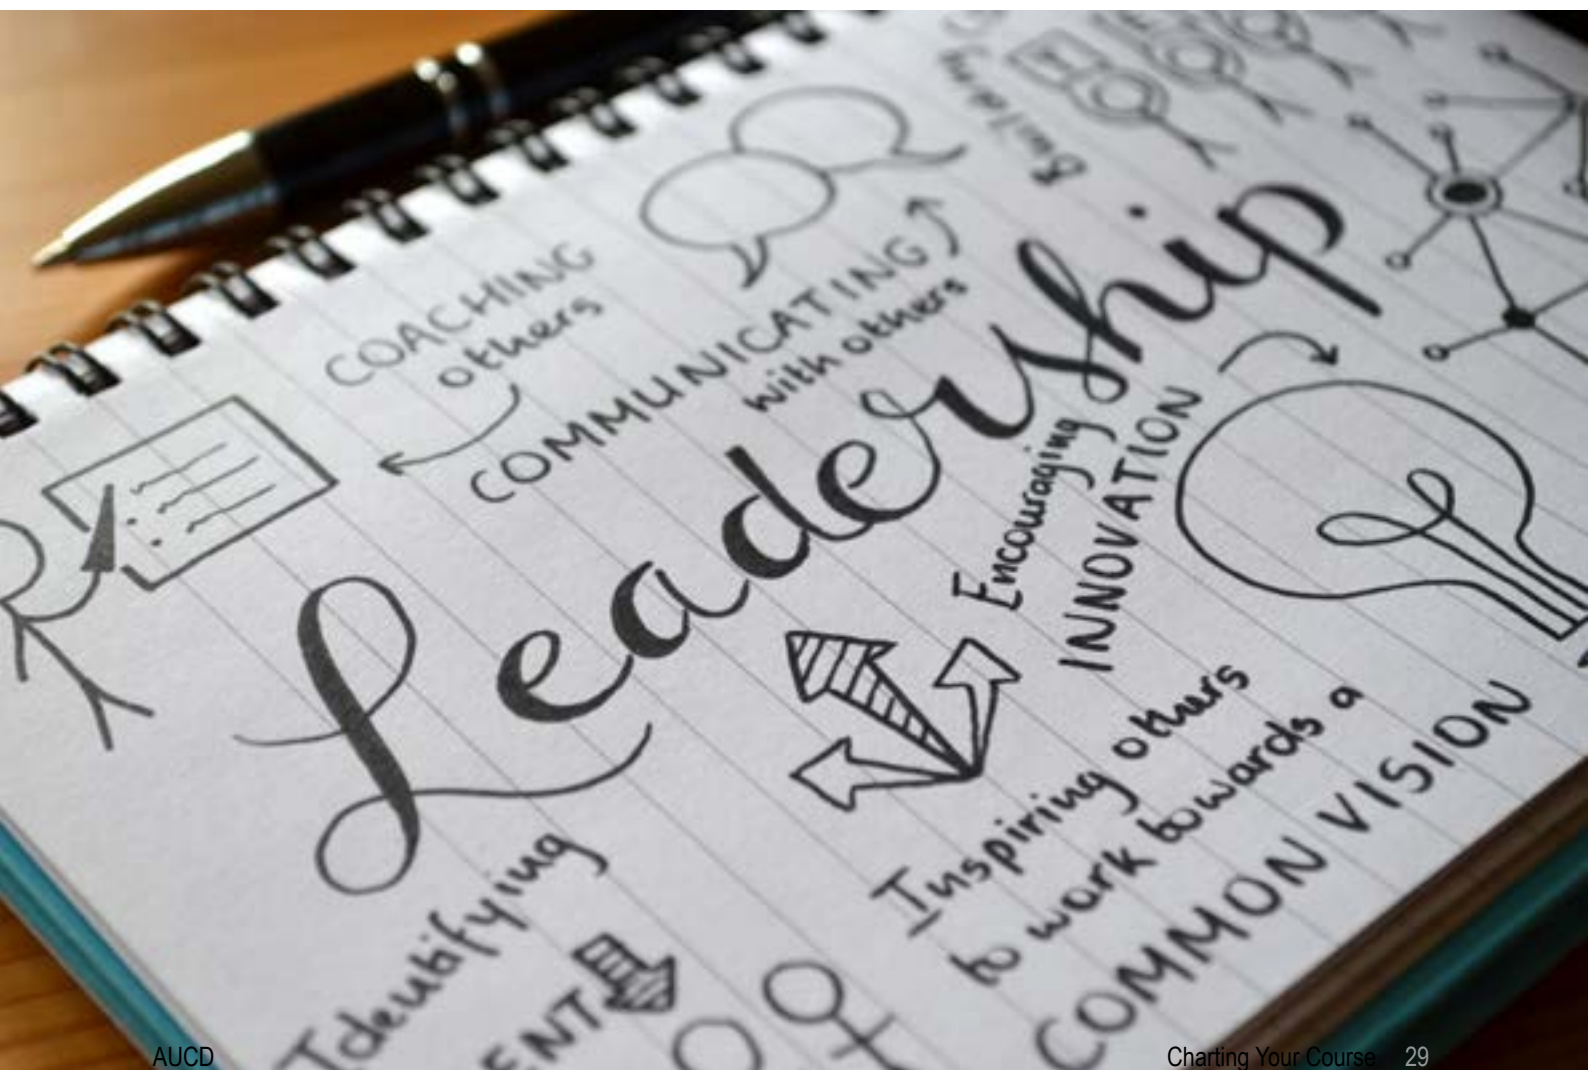 COACHING
others
COMMUNICATING
with others
Leadership
Encouraging
INNOVATION
Inspiring others
to work towards a
COMMON VISION
Identifying
AUCD
Charting Your Course 29